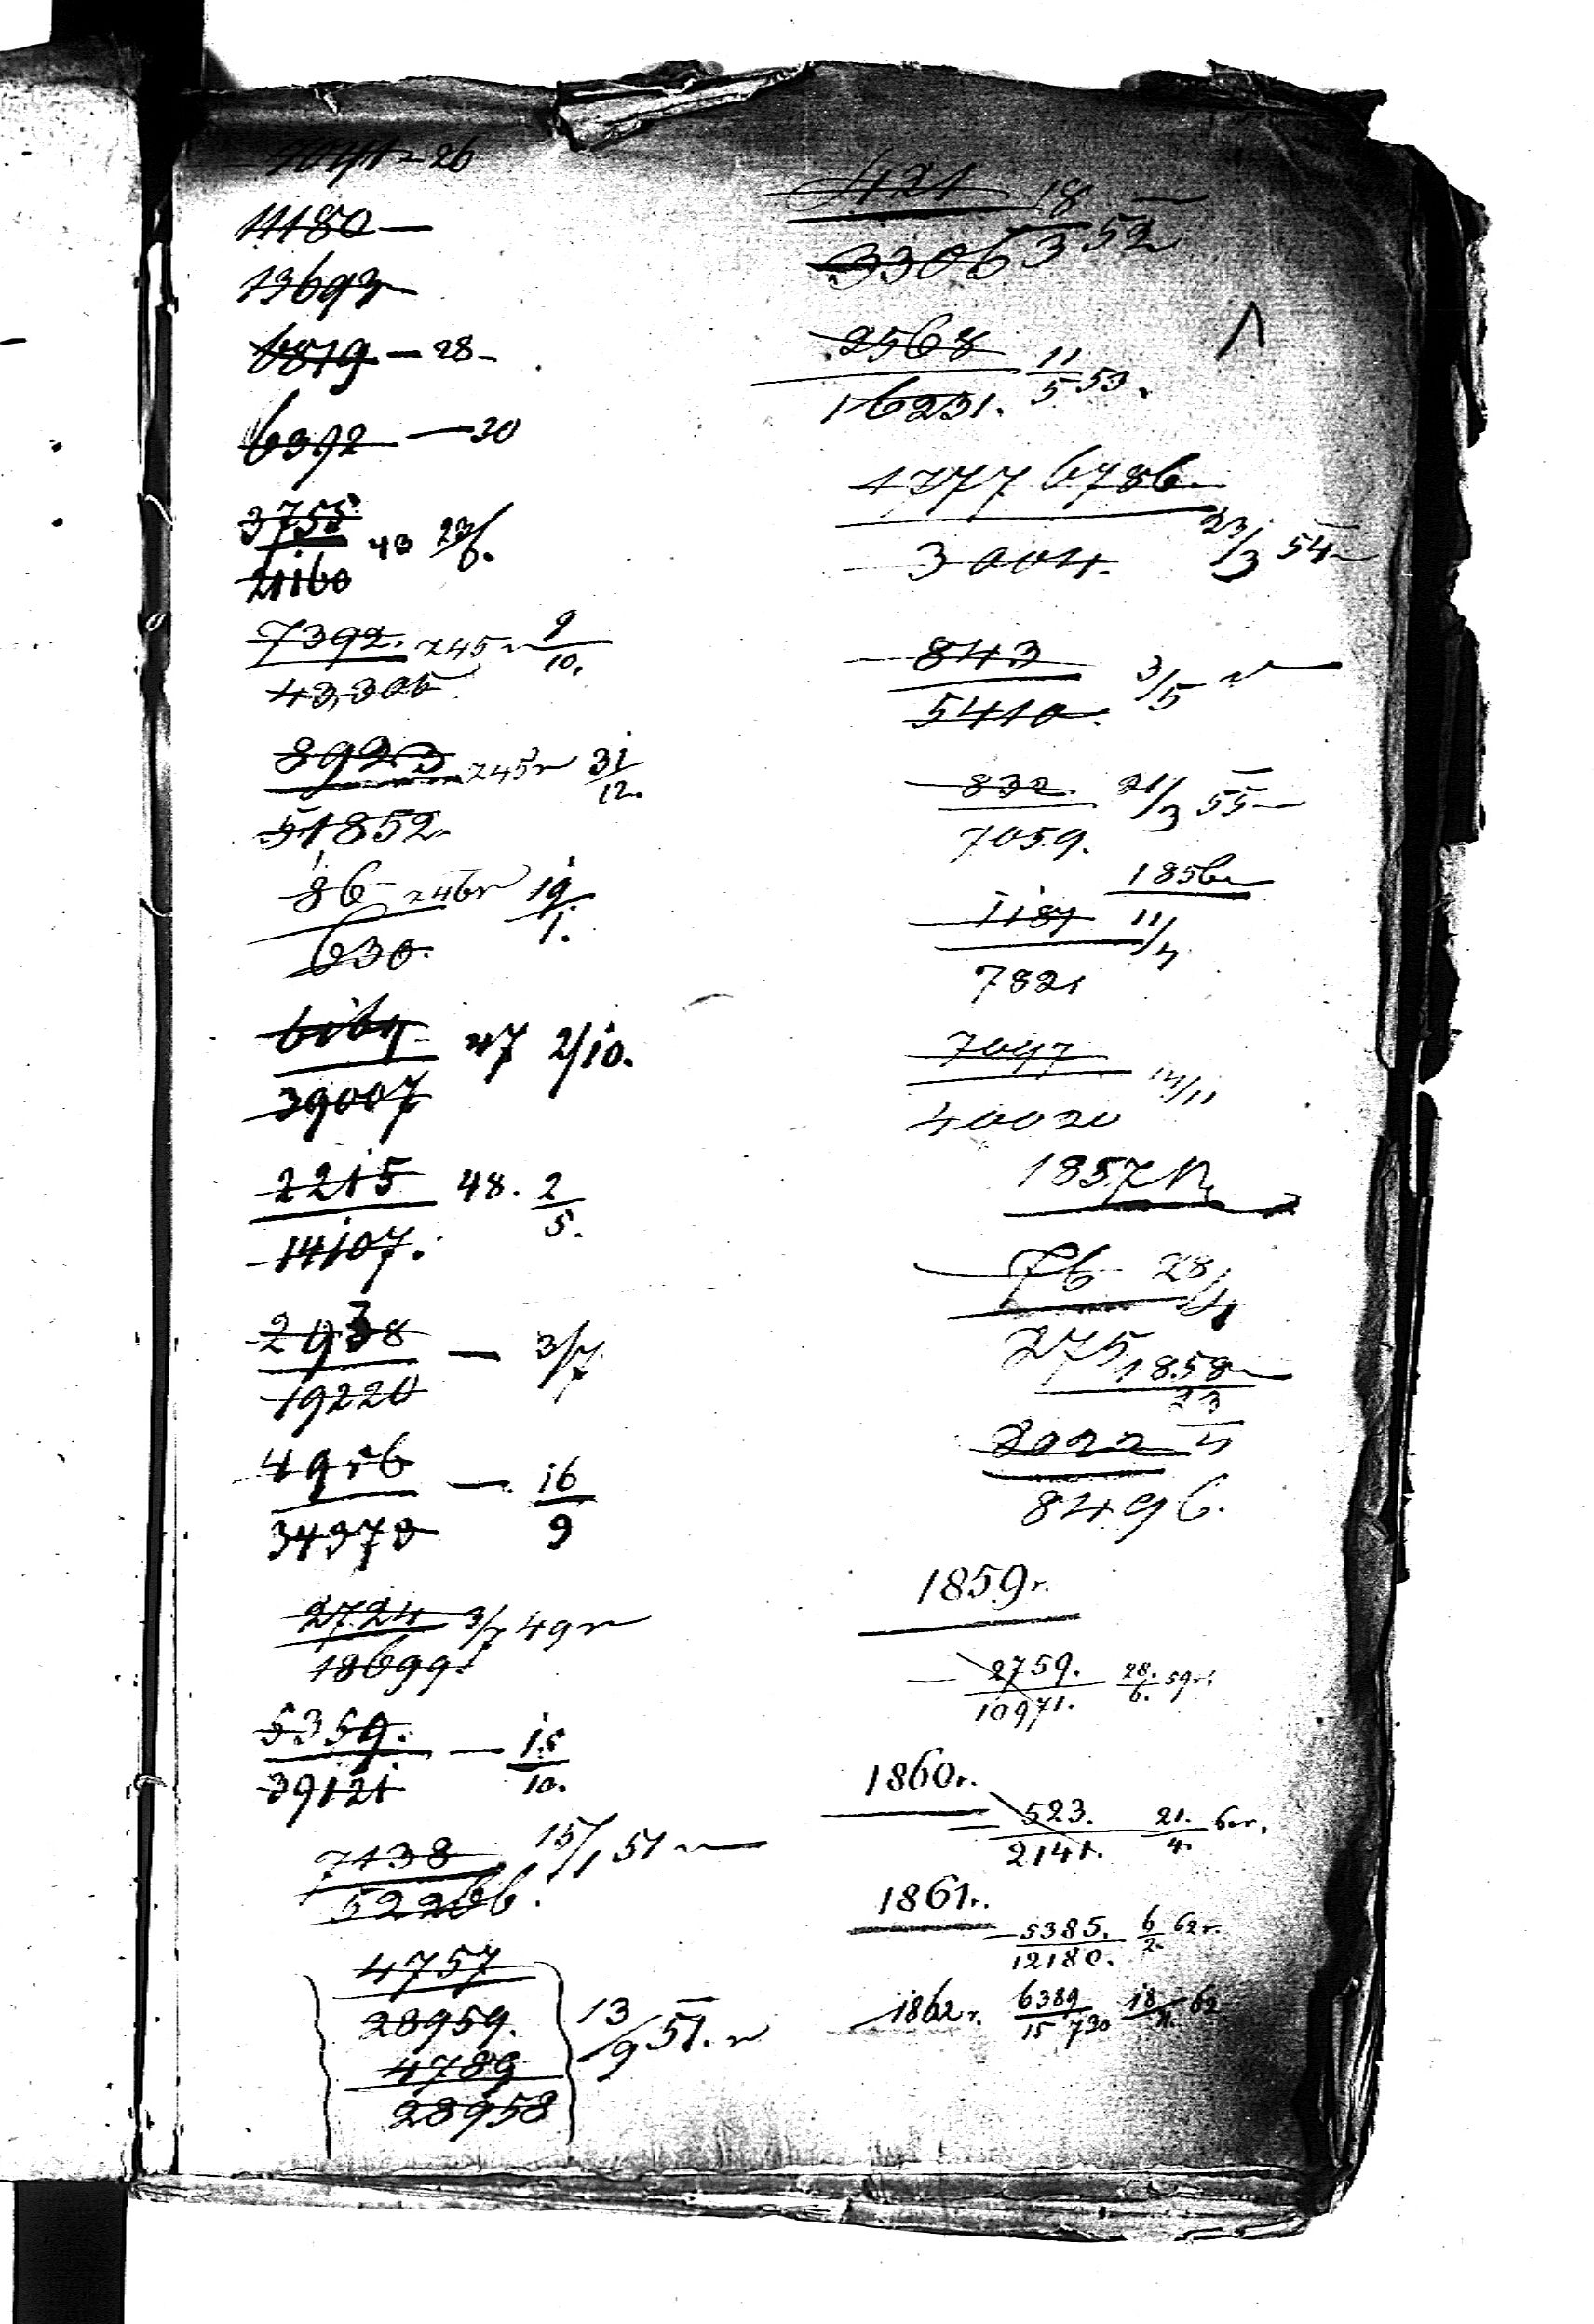 11180 —
13693
6819 — 28 —
6392 — 30
3755 43 23/6.
21160
7392. 245 г 9/10.
43,305
8923 245 г 31/12.
51852.
86 246 г 19/1.
630.
6164 47 2/10.
39007
2215 48. 2/5.
14107.
2938 — 3/7
19220
4956 — 16/9
34373
2724 3/7 49 г
18699.
5359. — 15/10.
39121
7138 15/1 51 г
52266.
4757
28959.
4789 13/9 51. г
28958
421 18/3 52
3306
2568 11/5 53.
16231.
1377 6786.
3004. 23/3 54
843 3/5
5410.
832 21/3 55
7059.
1856
1187 11/4
7821
7097
40020
1857
76 28/4
275
1858
23/4
8496.
1859 г.
2759. 28./6. 59 г.
10971.
1860 г.
523. 21./4. 60 г.
2141.
1861 г.
5385. 6/2. 62 г.
12180.
1862 г. 6389 18/11. 62
15 730